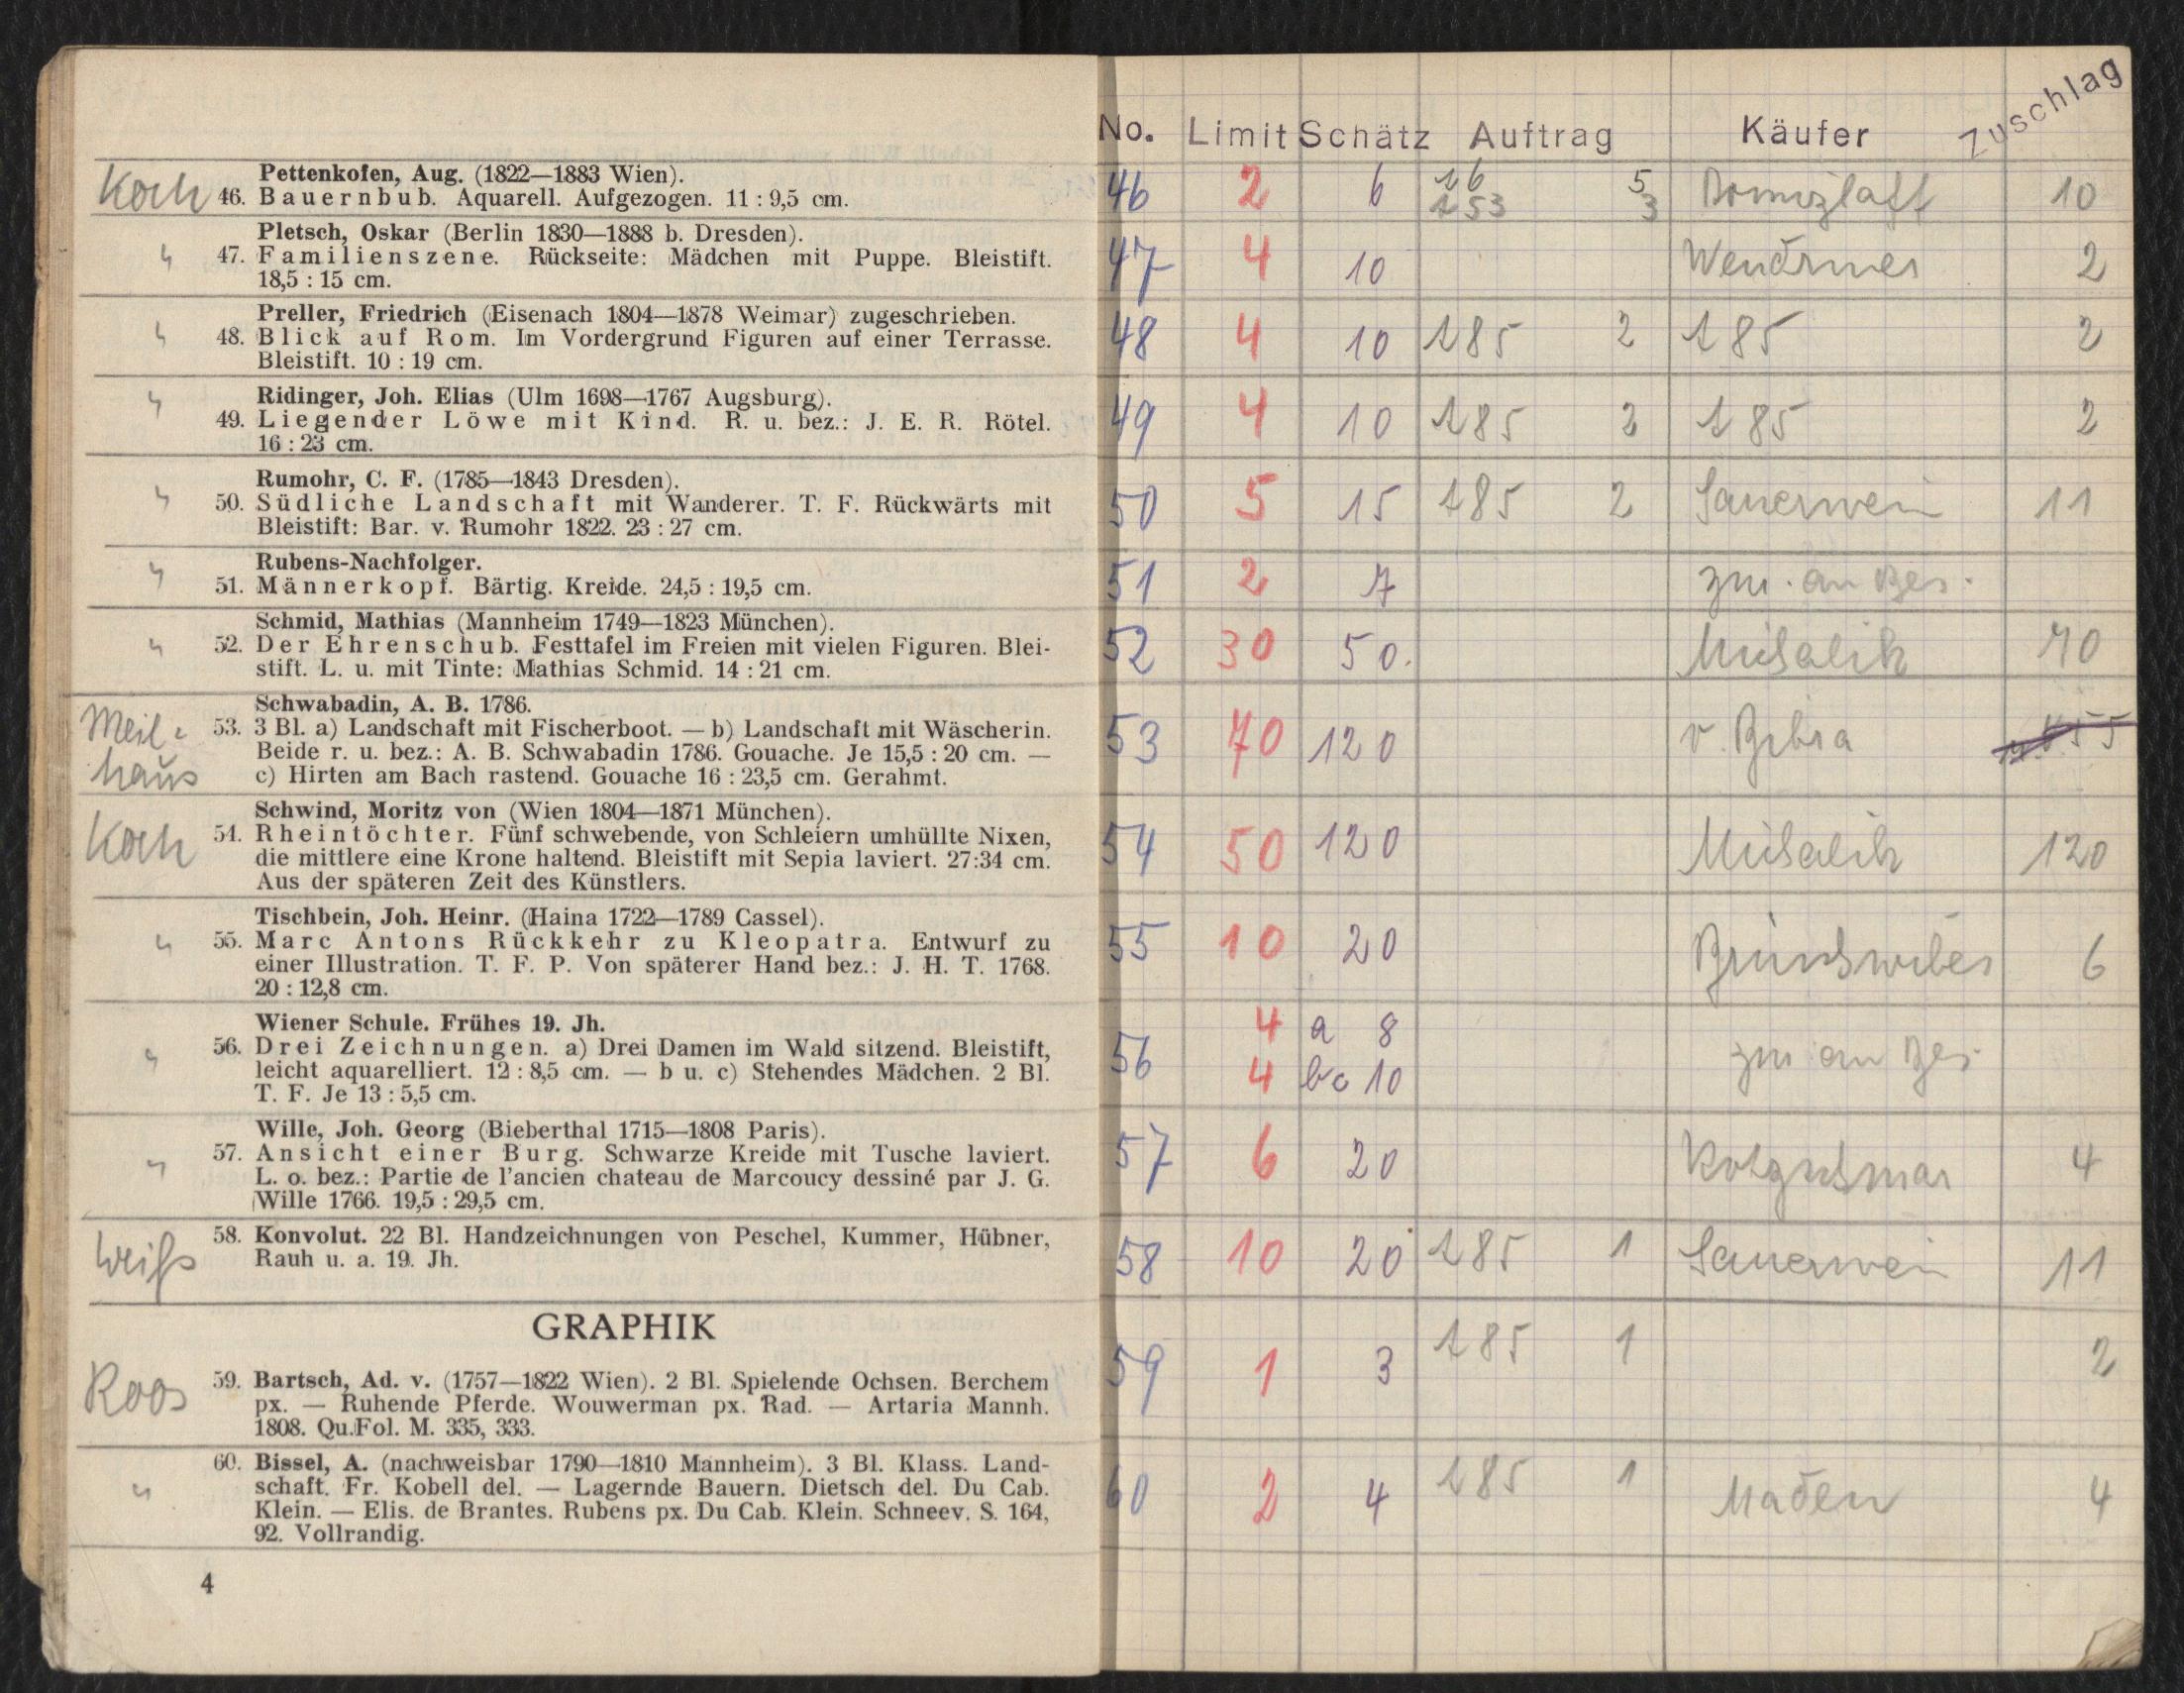 Koch
Pettenkofen, Aug. (1822—1883 Wien).
46. Bauernbub. Aquarell. Aufgezogen. 11 : 9,5 cm.
Pletsch, Oskar (Berlin 1830—1888 b. Dresden).
47. Familienszene. Rückseite: Mädchen mit Puppe. Bleistift.
18,5 : 15 cm.
Preller, Friedrich (Eisenach 1804—1878 Weimar) zugeschrieben.
48. Blick auf Rom. Im Vordergrund Figuren auf einer Terrasse.
Bleistift. 10 : 19 cm.
Ridinger, Joh. Elias (Ulm 1698—1767 Augsburg).
49. Liegender Löwe mit Kind. R. u. bez.: J. E. R. Rötel.
16 : 23 cm.
Rumohr, C. F. (1785—1843 Dresden).
50. Südliche Landschaft mit Wanderer. T. F. Rückwärts mit
Bleistift: Bar. v. Rumohr 1822. 23 : 27 cm.
Rubens-Nachfolger.
51. Männerkopf. Bärtig. Kreide. 24,5 : 19,5 cm.
Schmid, Mathias (Mannheim 1749—1823 München).
52. Der Ehrenschub. Festtafel im Freien mit vielen Figuren. Blei-
stift. L. u. mit Tinte: Mathias Schmid. 14 : 21 cm.
Meil-
haus
Schwabadin, A. B. 1786.
53. 3 Bl. a) Landschaft mit Fischerboot. — b) Landschaft mit Wäscherin.
Beide r. u. bez.: A. B. Schwabadin 1786. Gouache. Je 15,5 : 20 cm. —
c) Hirten am Bach rastend. Gouache 16 : 23,5 cm. Gerahmt.
Koch
Schwind, Moritz von (Wien 1804—1871 München).
54. Rheintöchter. Fünf schwebende, von Schleiern umhüllte Nixen,
die mittlere eine Krone haltend. Bleistift mit Sepia laviert. 27:34 cm.
Aus der späteren Zeit des Künstlers.
Tischbein, Joh. Heinr. (Haina 1722—1789 Cassel).
55. Marc Antons Rückkehr zu Kleopatra. Entwurf zu
einer Illustration. T. F. P. Von späterer Hand bez.: J. H. T. 1768.
20 : 12,8 cm.
Wiener Schule. Frühes 19. Jh.
56. Drei Zeichnungen. a) Drei Damen im Wald sitzend. Bleistift,
leicht aquarelliert. 12 : 8,5 cm. — b u. c) Stehendes Mädchen. 2 Bl.
T. F. Je 13 : 5,5 cm.
Wille, Joh. Georg (Bieberthal 1715—1808 Paris).
57. Ansicht einer Burg. Schwarze Kreide mit Tusche laviert.
L. o. bez.: Partie de l'ancien chateau de Marcoucy dessiné par J. G.
Wille 1766. 19,5 : 29,5 cm.
Weiß
58. Konvolut. 22 Bl. Handzeichnungen von Peschel, Kummer, Hübner,
Rauh u. a. 19. Jh.
GRAPHIK
Roos
59. Bartsch, Ad. v. (1757—1822 Wien). 2 Bl. Spielende Ochsen. Berchem
px. — Ruhende Pferde. Wouwerman px. Rad. — Artaria Mannh.
1808. Qu.Fol. M. 335, 333.
60. Bissel, A. (nachweisbar 1790—1810 Mannheim). 3 Bl. Klass. Land-
schaft. Fr. Kobell del. — Lagernde Bauern. Dietsch del. Du Cab.
Klein. — Elis. de Brantes. Rubens px. Du Cab. Klein. Schneev. S. 164,
92. Vollrandig.
4
No. Limit Schätz Auftrag Käufer Zuschlag
46 2 6 5 3 10
47 4 10 2
48 4 10 185 2 185 2
49 4 10 185 2 185 2
50 5 15 185 2 Sauerwein 11
51 2 7 zur. an Bes.
52 30 50. 70
53 70 120 v. Bibra
54 50 120 120
55 10 20 6
56 4 a 8 zur an Bes.
4 bc 10
57 6 20 4
58 10 20 185 1 Sauerwein 11
59 1 3 185 1 2
60 2 4 185 1 Maden 4